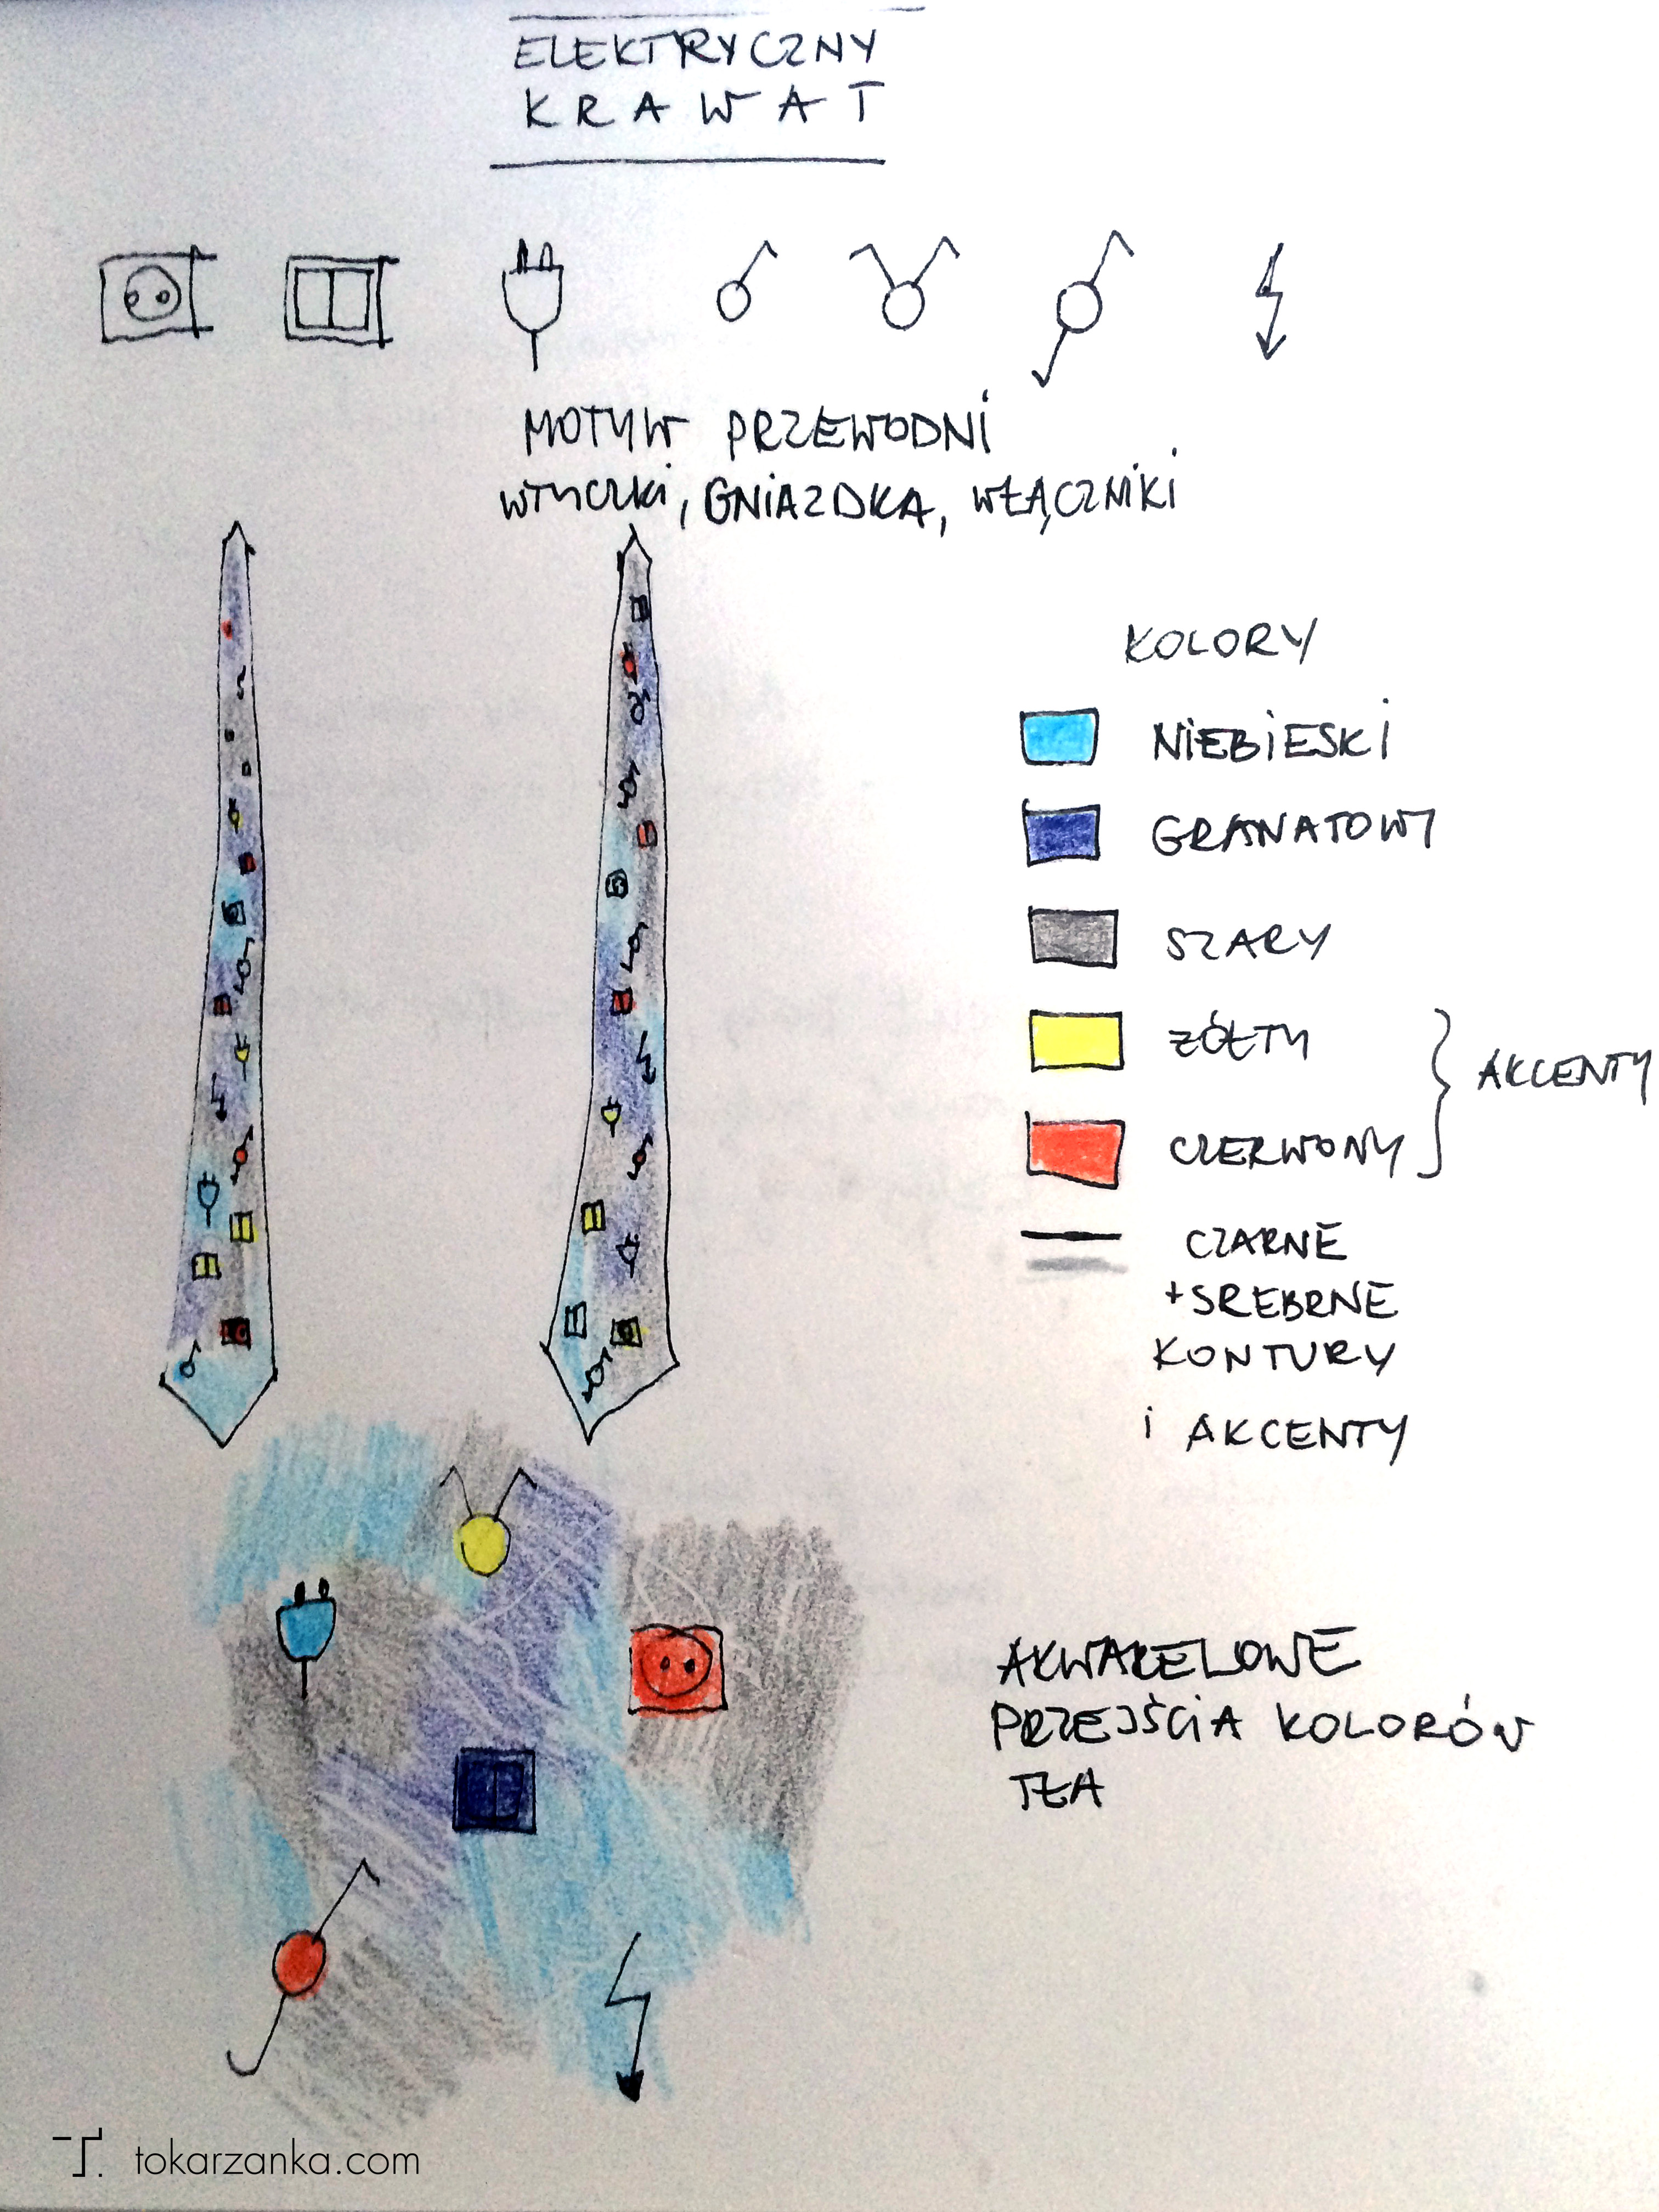 ELEKTRYCZNY
KRAWAT
MOTYW PRZEWODNI
WTYCZKI, GNIAZDKA, WŁĄCZNIKI
KOLORY
NIEBIESKI
GRANATOWY
SZARY
ŻÓŁTY
AKCENTY
CZERWONY
CZARNE
+SREBRNE
KONTURY
i AKCENTY
AKWARELOWE
PRZEJŚCIA KOLORÓW
TŁA
T. tokarzanka.com